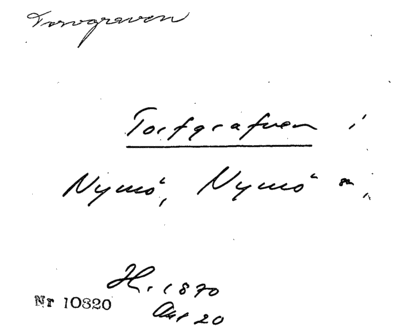 Torvgraven
Torfgrafven i
Nymö, Nymö sn,
H. 1870
Nr 10820